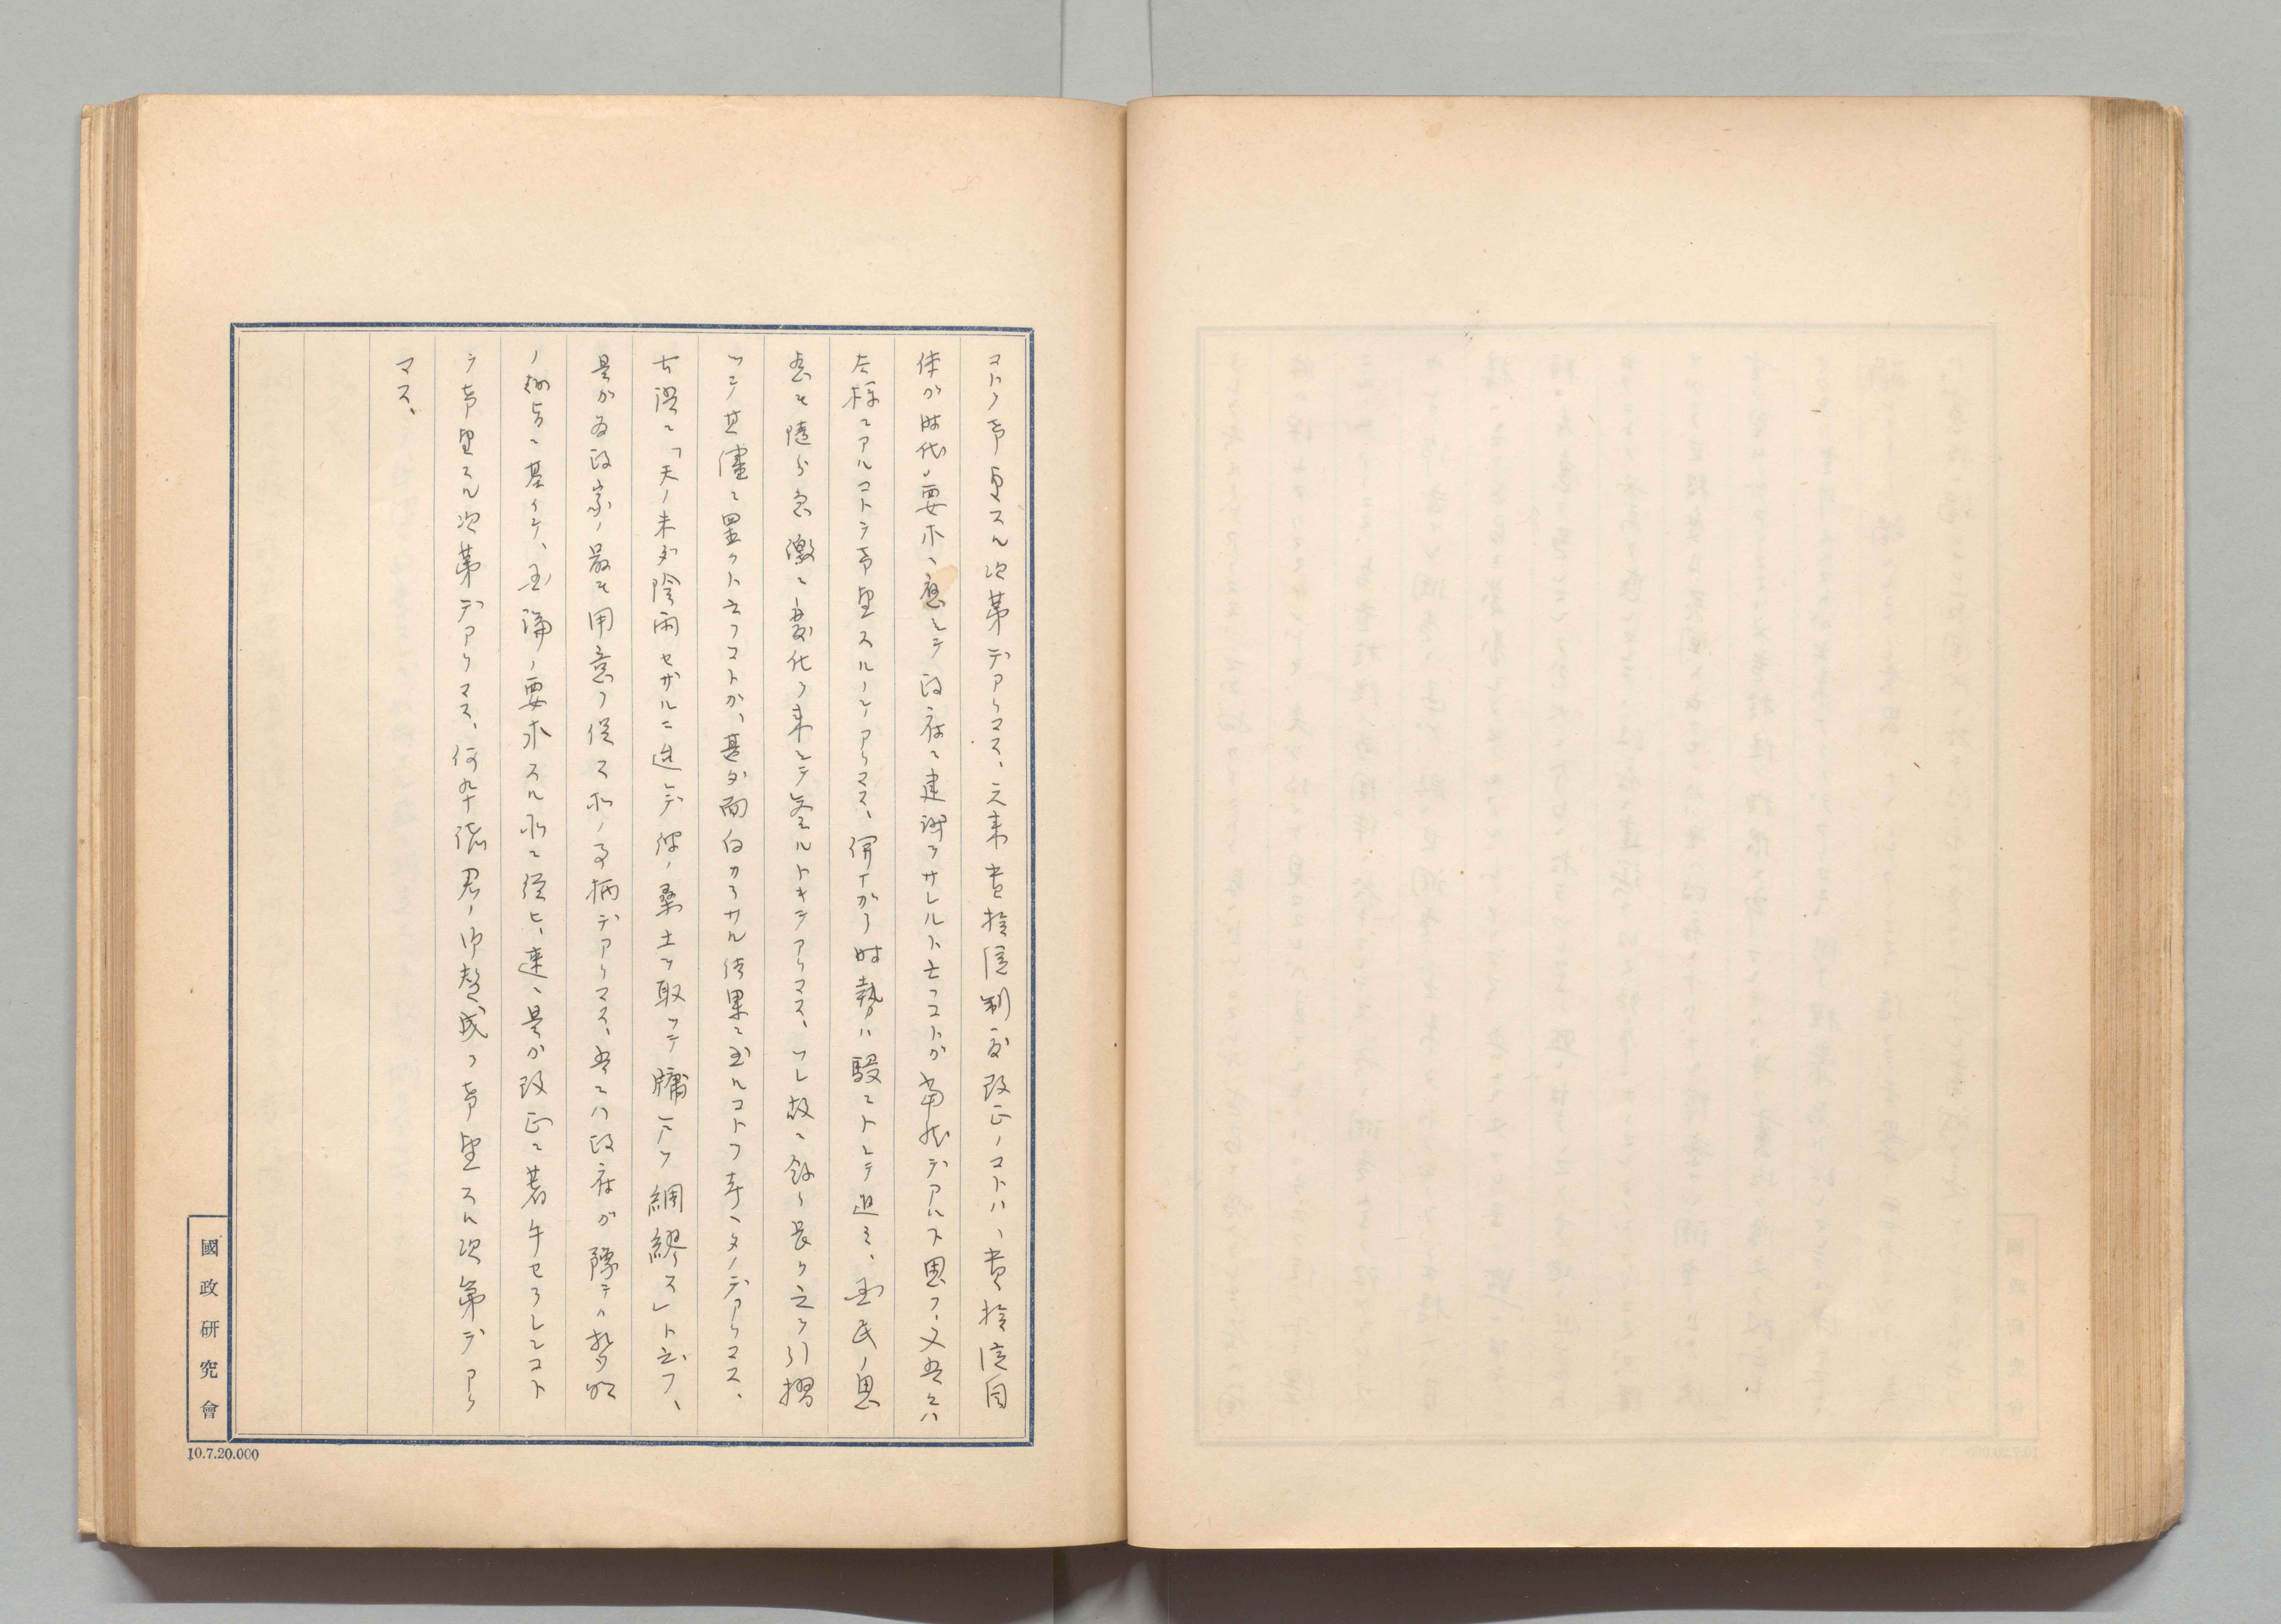 コトヲ希望スル次第デアリマス、元来貴族院制度改正ノコトハ、貴族院自
体ガ時代ノ要求ニ應ジテ政府ニ建議ヲサレルト云フコトガ當然デアルト思フ、又吾々ハ
左様ニアルコトヲ希望スルノデアリマス、併ナガラ時勢ハ駸々トシテ進ミ、国民ノ思
想モ随分急激ニ変化ヲ来シテ参ルトキデアリマス、ソレ故ニ餘リ長ク之ヲ引摺
ツテ其儘ニ置クト云フコトガ、甚ダ面白カラザル結果ニ至ルコトヲ
古語ニ「天ノ未ダ陰雨セザルニ迨ンデ彼ノ桑土ヲ取ツテ牖戸ヲ綢繆ス」ト云フ、
是ガ為政家ノ最モ用意ヲ
ノ趣旨ニ基イテ、国論ノ要求スル所ニ従ヒ、速ニ是ガ改正ニ著手セラレンコト
ヲ希望スル次第デアリマス、何卒諸君ノ御賛成ヲ希望スル次第デアリ
マス、
國政研究會
10.7.20.000